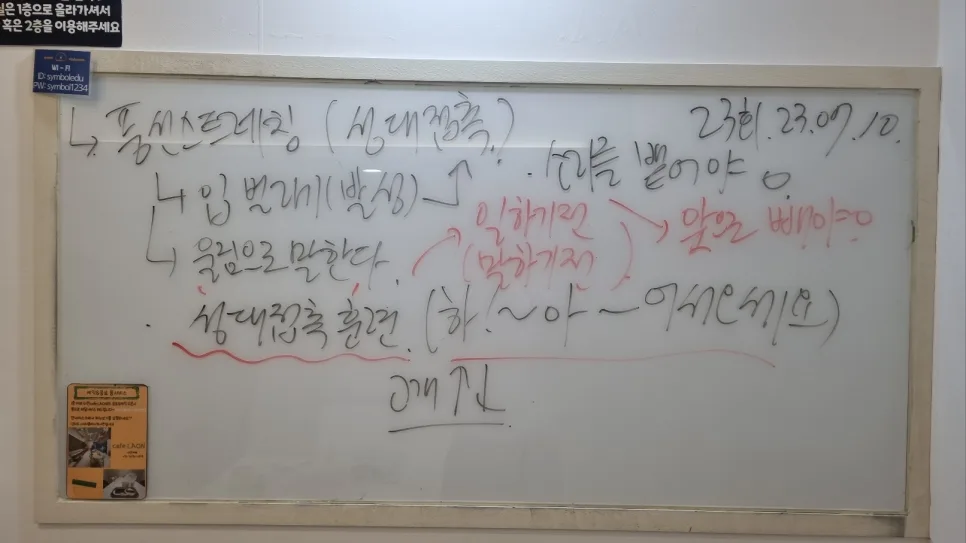 실은 1층으로 올라가셔서
혹은 2층을 이용해주세요
WI-FI
ID: symboledu
PW: symbol1234
23회. 23. 07. 10.
↳ 풍선스트레칭 (성대접촉?)
↳ 입 벌리기(발성)
· 소리를 뱉어야
↳ 울림으로 말한다.
일하기전
(말하기전)
앞으로 빼야
· 성대접촉 훈련. (하!~아~어서오세요)